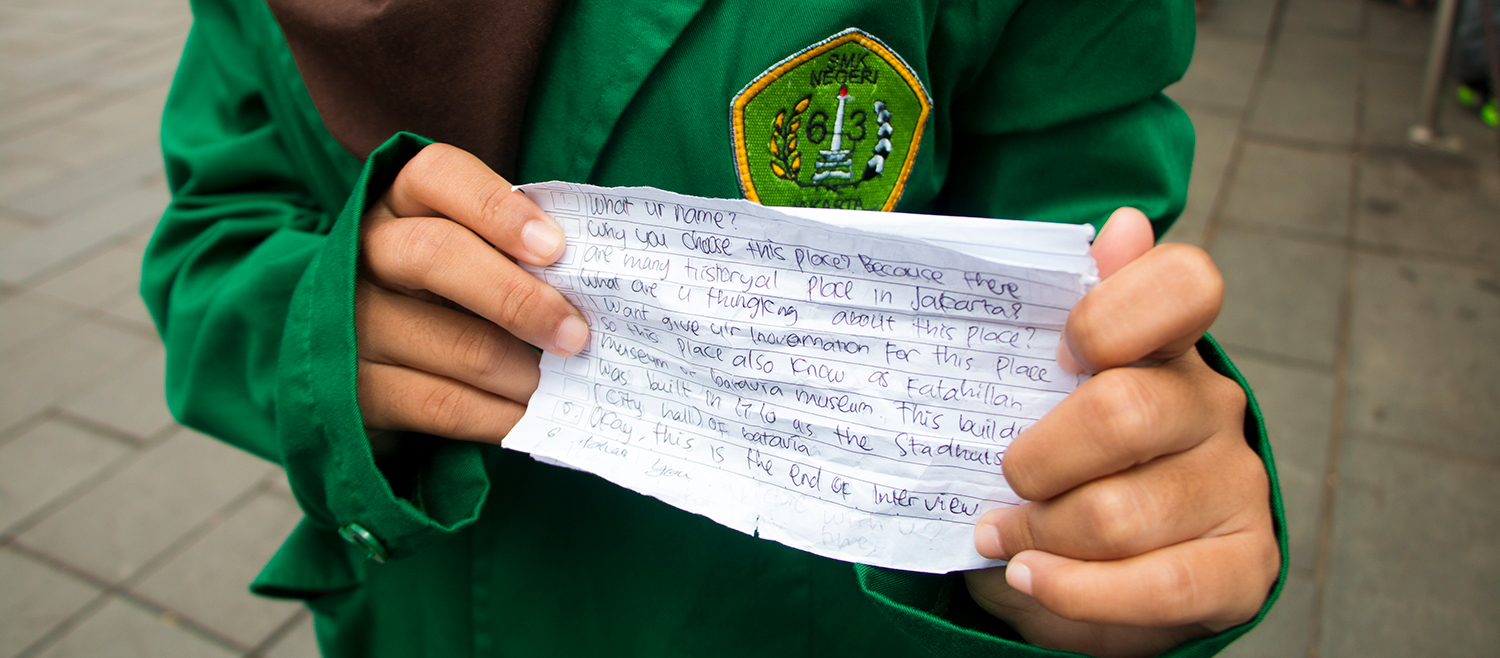 SMK
NEGERI
63
JAKARTA
What ur name?
Why you choose this place? Because there
are many historyal place in Jakarta?
What are u thingking about this place?
I want give ur inovermation for this place
so this place also know as Fatahillah
museum or batavia museum. This build
was built in 1710 as the Stadhuis
(City hall) of batavia
5. Okay, this is the end of interview
6. you